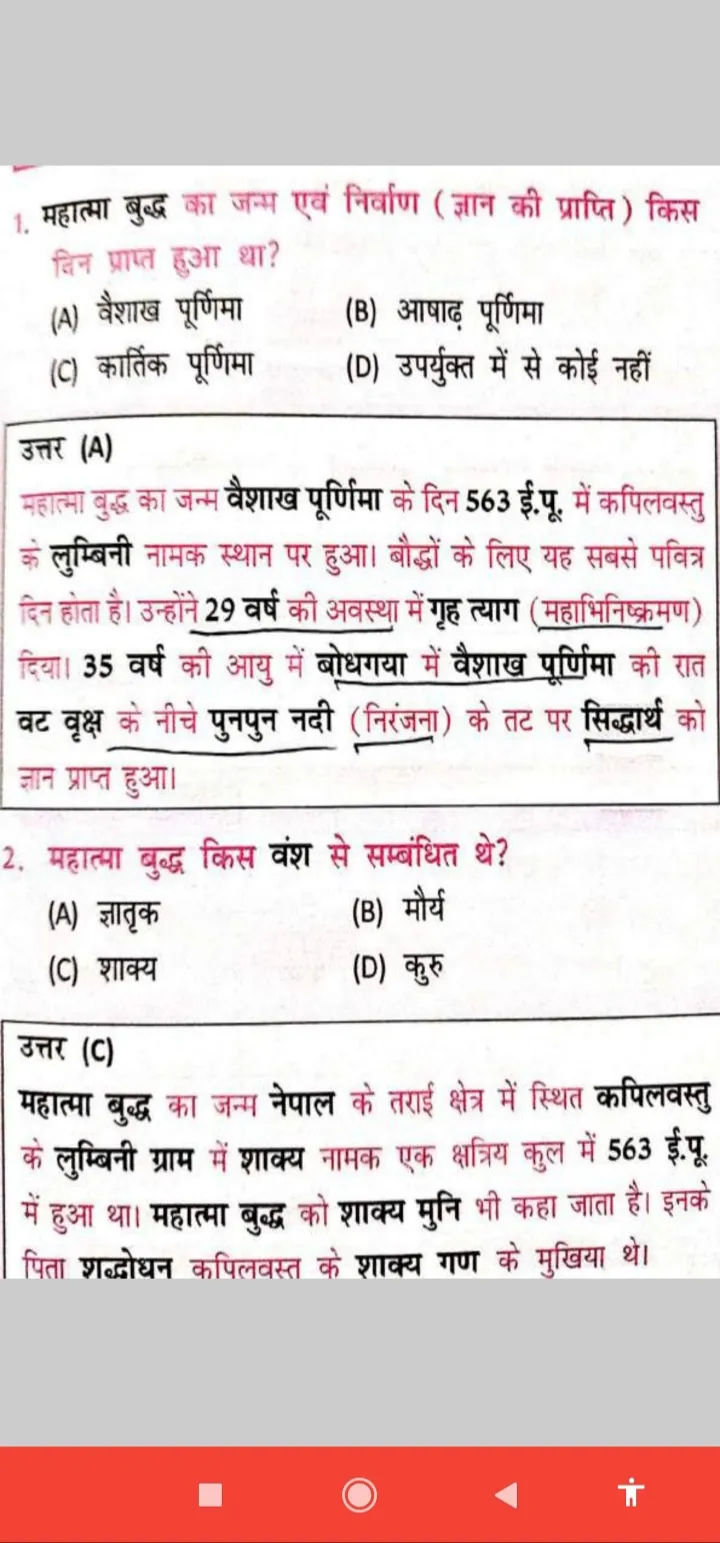 1. महात्मा बुद्ध का जन्म एवं निर्वाण ( ज्ञान की प्राप्ति ) किस
दिन प्राप्त हुआ था?
(A) वैशाख पूर्णिमा (B) आषाढ़ पूर्णिमा
(C) कार्तिक पूर्णिमा (D) उपर्युक्त में से कोई नहीं
उत्तर (A)
महात्मा बुद्ध का जन्म वैशाख पूर्णिमा के दिन 563 ई.पू. में कपिलवस्तु
के लुम्बिनी नामक स्थान पर हुआ। बौद्धों के लिए यह सबसे पवित्र
दिन होता है। उन्होंने 29 वर्ष की अवस्था में गृह त्याग (महाभिनिष्क्रमण)
दिया। 35 वर्ष की आयु में बोधगया में वैशाख पूर्णिमा की रात
वट वृक्ष के नीचे पुनपुन नदी (निरंजना) के तट पर सिद्धार्थ को
ज्ञान प्राप्त हुआ।
2. महात्मा बुद्ध किस वंश से सम्बंधित थे?
(A) ज्ञातृक (B) मौर्य
(C) शाक्य (D) कुरु
उत्तर (C)
महात्मा बुद्ध का जन्म नेपाल के तराई क्षेत्र में स्थित कपिलवस्तु
के लुम्बिनी ग्राम में शाक्य नामक एक क्षत्रिय कुल में 563 ई.पू.
में हुआ था। महात्मा बुद्ध को शाक्य मुनि भी कहा जाता है। इनके
पिता शुद्धोधन कपिलवस्तु के शाक्य गण के मुखिया थे।